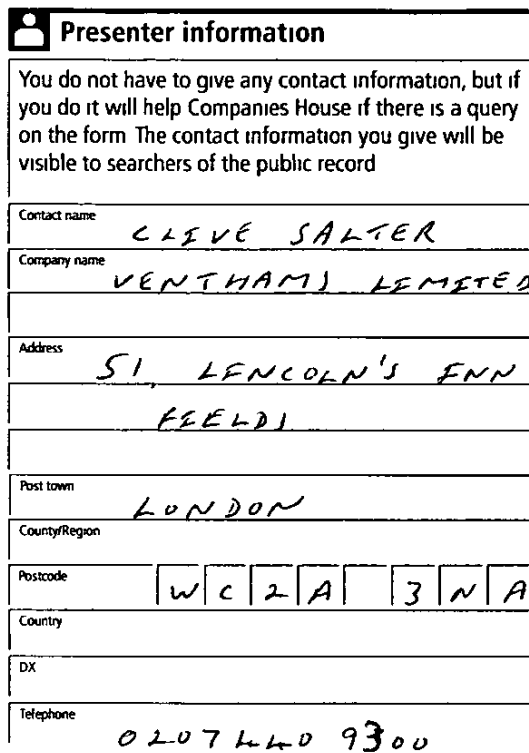 Presenter information
You do not have to give any contact information, but if
you do it will help Companies House if there is a query
on the form The contact information you give will be
visible to searchers of the public record
Contact name
CLIVE SALTER
Company name
VENTHAMS LIMITED
Address
51, LINCOLN'S INN
FIELDS
Post town
LONDON
County/Region
Postcode
WC2A 3NA
Country
DX
Telephone
0207 440 9300